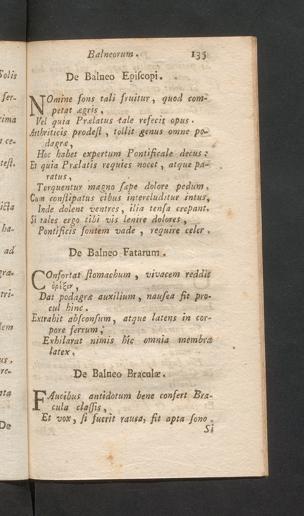 Balneorum. 135
De Balneo Epiſcopi.
NOmine fons tali fruitur, quod com-
petat ægris,
Vel quia Prælatus tale refecit opus.
Arthriticis prodeſt, tollit genus omne po-
dagræ,
Hoc habet expertum Pontificale decus:
Et quia Prælatis requies nocet, atque pa-
ratus,
Torquentur magno ſæpe dolore pedum.
Cum conſtipatus cibus intercluditur intus,
Inde dolent ventres, ilia tenſa crepant.
Si tales ergo tibi vis lenire dolores,
Pontificis fontem vade, require celer.
De Balneo Fatarum.
COnfortat ſtomachum, vivacem reddit
Dat podagræ auxilium, nauſea fit pro-
cul hinc.
Extrahit abſconſum, atque latens in cor-
pore ferrum;
Exhilarat nimis hic omnia membra
latex.
De Balneo Braculæ.
FAucibus antidotum bene confert Bra-
cula claſſis,
Et vox, ſi fuerit rauca, fit apta ſono.
Si
Solis
ſer-
cima
ce-
teſt.
icta
ha-
ad
gra-
tri-
dem
us,
re-
nta
De